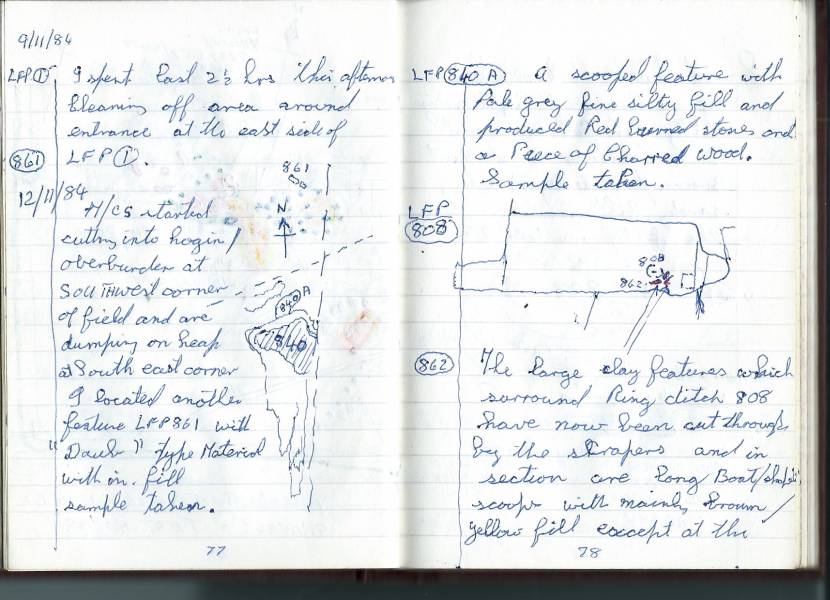 9/11/84
LFP① I spent last 2½ hrs this afternoon
Cleaning off area around
entrance at the east side of
861 LFP①.
12/11/84
M/CS started
cutting into hogin/
overburden at
SOUTHwest corner
of field and are
dumping on heap
at South east corner
I located another
feature LFP861 with
"Daub" type Material
with in. fill
sample taken.
861
N
840 A
840
77
LFP 840 A A scooped feature with
Pale grey fine silty fill and
produced Red burned stones and
a Piece of Charred wood.
Sample taken.
LFP
808
808
862
862 The large clay features which
surround Ring ditch 808
have now been cut through
by the scrapers and in
section are long Boat/shaped
scoops with mainly brown/
yellow fill except at the
78